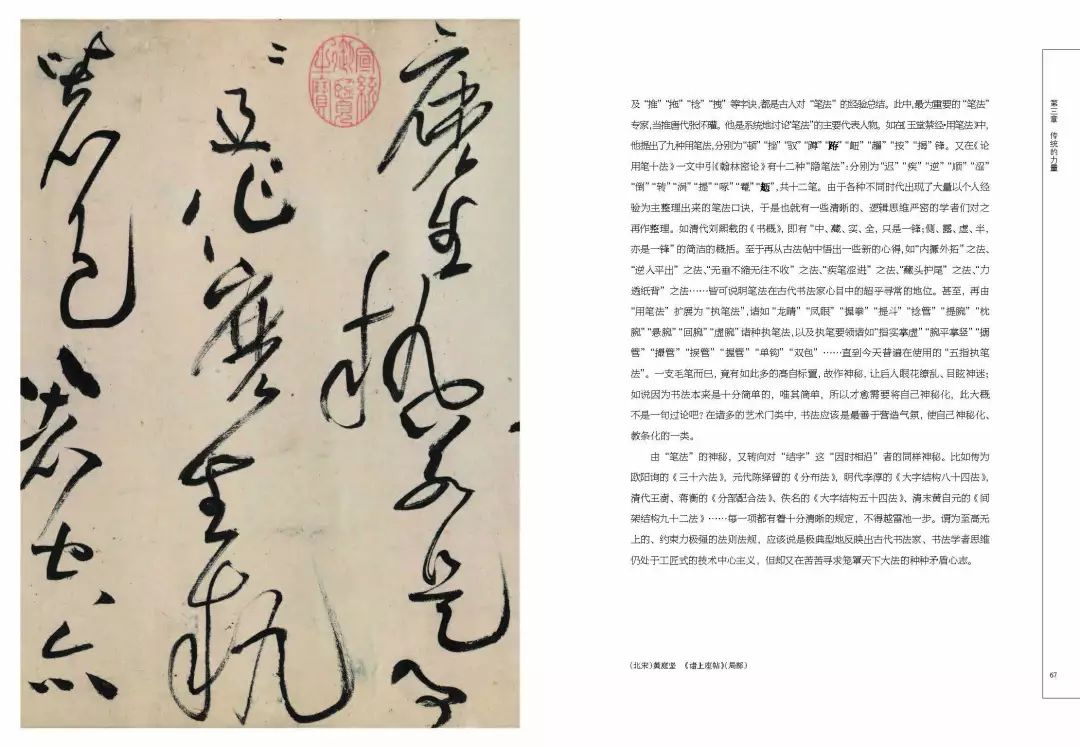 宣統御覽之寶
二
及“推”“拖”“捻”“拽”等字诀,都是古人对“笔法”的经验总结。此中,最为重要的“笔法”
专家,当推唐代张怀瓘。他是系统地讨论“笔法”的主要代表人物。如在《玉堂禁经·用笔法》中,
他提出了九种用笔法,分别为“顿”“挫”“驭”“蹲”“䟫”“衄”“趯”“按”“揭”锋。又在《论
用笔十法》一文中引《翰林密论》有十二种“隐笔法”:分别为“迟”“疾”“逆”“顺”“涩”
“倒”“转”“涡”“提”“啄”“罨”“趔”,共十二笔。由于各种不同时代出现了大量以个人经
验为主整理出来的笔法口诀,于是也就有一些清晰的、逻辑思维严密的学者们对之
再作整理。如清代刘熙载的《书概》,即有“中、藏、实、全,只是一锋;侧、露、虚、半,
亦是一锋”的简洁的概括。至于再从古法帖中悟出一些新的心得,如“内擫外拓”之法、
“逆入平出”之法、“无垂不缩无往不收”之法、“疾笔涩进”之法、“藏头护尾”之法、“力
透纸背”之法……皆可说明笔法在古代书法家心目中的超乎寻常的地位。甚至,再由
“用笔法”扩展为“执笔法”,诸如“龙睛”“凤眼”“握拳”“提斗”“捻管”“提腕”“枕
腕”“悬腕”“回腕”“虚腕”诸种执笔法,以及执笔要领诸如“指实掌虚”“腕平掌竖”“搁
管”“撮管”“捩管”“握管”“单钩”“双包”……直到今天普遍在使用的“五指执笔
法”。一支毛笔而已,竟有如此多的高自标置,故作神秘,让后人眼花缭乱、目眩神迷;
如说因为书法本来是十分简单的,唯其简单,所以才愈需要将自己神秘化,此大概
不是一句过论吧?在诸多的艺术门类中,书法应该是最善于营造气氛,使自己神秘化、
教条化的一类。
由“笔法”的神秘,又转向对“结字”这“因时相沿”者的同样神秘。比如传为
欧阳询的《三十六法》,元代陈绎曾的《分布法》,明代李淳的《大字结构八十四法》,
清代王澍、蒋衡的《分部配合法》、佚名的《大字结构五十四法》、清末黄自元的《间
架结构九十二法》……每一项都有着十分清晰的规定,不得越雷池一步。谓为至高无
上的、约束力极强的法则法规,应该说是极典型地反映出古代书法家、书法学者思维
仍处于工匠式的技术中心主义,但却又在苦苦寻求笼罩天下大法的种种矛盾心志。
(北宋)黄庭坚 《诸上座帖》(局部)
第三章 传统的力量
67